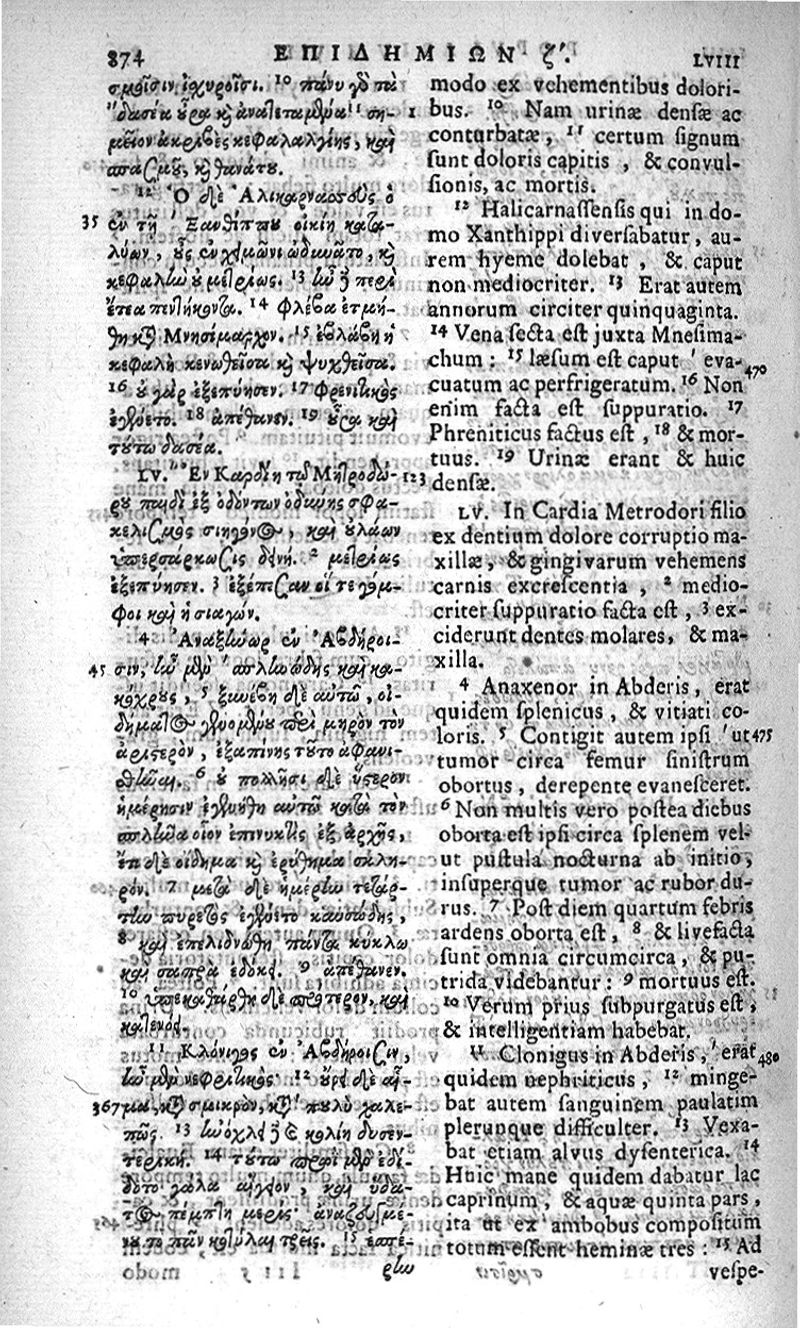 874 ΕΠΙΔΗΜΙΩΝ ζʹ. LVIII
σμοῖσιν ἰσχυροῖσι. 10 πάνυ γὸ τὰ
"δασέα ὖρα κὶ 11 ση-
μεῖον ἀκριβὲς κεφαλαλγίης, καὶ
σπασμοῦ, κὶ θανάτου.
12 Ὁ δὲ Ἁλικαρνασσοὺς ὁ
35 ἐν τῇ Ξανθίππου οἰκίῃ κατα-
λύων, οὖς ἐν χειμῶνι ὠδυνᾶτο, κὶ
κεφαλὴν οὐ μετρίως. 13 ἦν ᾗ περὶ
ἔτεα πεντήκοντα. 14 φλέβα ἐτμή-
θη κατὰ Μνησίμαχον. 15 ἐβλάβη ἡ
κεφαλὴ κενωθεῖσα κὶ ψυχθεῖσα.
16 οὐ γὰρ ἐξεπύησεν. 17 Φρενιτικὸς
ἐγένετο. 18 ἀπέθανεν. 19 ὖρα καὶ
τούτῳ δασέα.
LV. "Ἐν Καρδίῃ τῷ Μητροδώ- 123
ρου παιδὶ ἐξ ὀδόντων ὀδύνης σφα-
κελισμὸς σιηγόνος, καὶ οὔλων
ὑπερσάρκωσις δεινή. 2 μετρίως
ἐξεπύησεν. 3 ἐξέπεσαν οἵ τε γόμ-
φοι καὶ ἡ σιαγών.
4 Ἀναξήνωρ ἐν Ἀβδήροι-
45 σιν, ἦν μὲν σπληνώδης καὶ κα-
κόχρους, 5 ξυνέβη δὲ αὐτῷ, οἰ-
δήματος γενομένου περὶ μηρὸν τὸν
ἀριστερὸν, ἐξαπίνης τοῦτο ἀφανι-
σθῆναι. 6 οὐ πολλῇσι δὲ ὕστερον
ἡμέρῃσιν ἐγενήθη αὐτῷ κατὰ τὸν
σπλῆνα οἷον ἐπινυκτὶς ἐξ ἀρχῆς,
ἔπειτα δὲ οἴδημα κὶ ἐρύθημα σκλη-
ρόν. 7 μετὰ δὲ ἡμέρην τετάρ-
την πυρετὸς ἐγένετο καυσώδης,
8 καὶ ἐπελιδνώθη πάντα κύκλῳ
καὶ σαπρὰ ἐδόκει. 9 ἀπέθανεν.
10 ὑπεκαθάρθη δὲ πρότερον, καὶ
κατενόει.
11 Κλόνιγος ἐν Ἀβδήροισιν,
ἦν μὲν νεφριτικός· 12 οὔρει δὲ αἷ-
367 μα, κατὰ σμικρὸν, κατὰ πολὺ χαλε-
πῶς. 13 ἠνώχλει ᾗ ἡ κοιλίη δυσεν-
τερική. 14 τούτῳ πρωῒ μὲν ἐδί-
δοτο γάλα αἴγειον, καὶ ὕδα-
τος πέμπτη μερίς· ἀναζεσμέ-
νου τὸ πᾶν κοτύλαι τρεῖς. 15 ἑσπέ-
ρην
modo ex vehementibus dolori-
1 bus. 10 Nam urinæ densæ ac
conturbatæ, 11 certum signum
sunt doloris capitis, & convul-
sionis, ac mortis.
12 Halicarnassensis qui in do-
mo Xanthippi diversabatur, au-
rem hyeme dolebat, & caput
non mediocriter. 13 Erat autem
annorum circiter quinquaginta.
14 Vena secta est juxta Mnesima-
chum: 15 læsum est caput ' eva- 470
cuatum ac perfrigeratum. 16 Non
enim facta est suppuratio. 17
Phreniticus factus est, 18 & mor-
tuus. 19 Urinæ erant & huic
densæ.
LV. In Cardia Metrodori filio
ex dentium dolore corruptio ma-
xillæ, & gingivarum vehemens
carnis excrescentia, 2 medio-
criter suppuratio facta est, 3 ex-
ciderunt dentes molares, & ma-
xilla.
4 Anaxenor in Abderis, erat
quidem splenicus, & vitiati co-
loris. 5 Contigit autem ipsi ' ut 475
tumor circa femur sinistrum
obortus, derepente evanesceret.
6 Non multis vero postea diebus
oborta est ipsi circa splenem vel-
ut pustula nocturna ab initio,
insuperque tumor ac rubor du-
rus. 7 Post diem quartum febris
ardens oborta est, 8 & livefacta
sunt omnia circumcirca, & pu-
trida videbantur: 9 mortuus est.
10 Verum prius subpurgatus est,
& intelligentiam habebat.
11 Clonigus in Abderis, ' erat 480
quidem nephriticus, 12 minge-
bat autem sanguinem paulatim
plerunque difficulter. 13 Vexa-
bat etiam alvus dysenterica. 14
Huic mane quidem dabatur lac
caprinum, & aquæ quinta pars,
ita ut ex ambobus compositum
totum essent heminæ tres: 15 Ad
vespe-